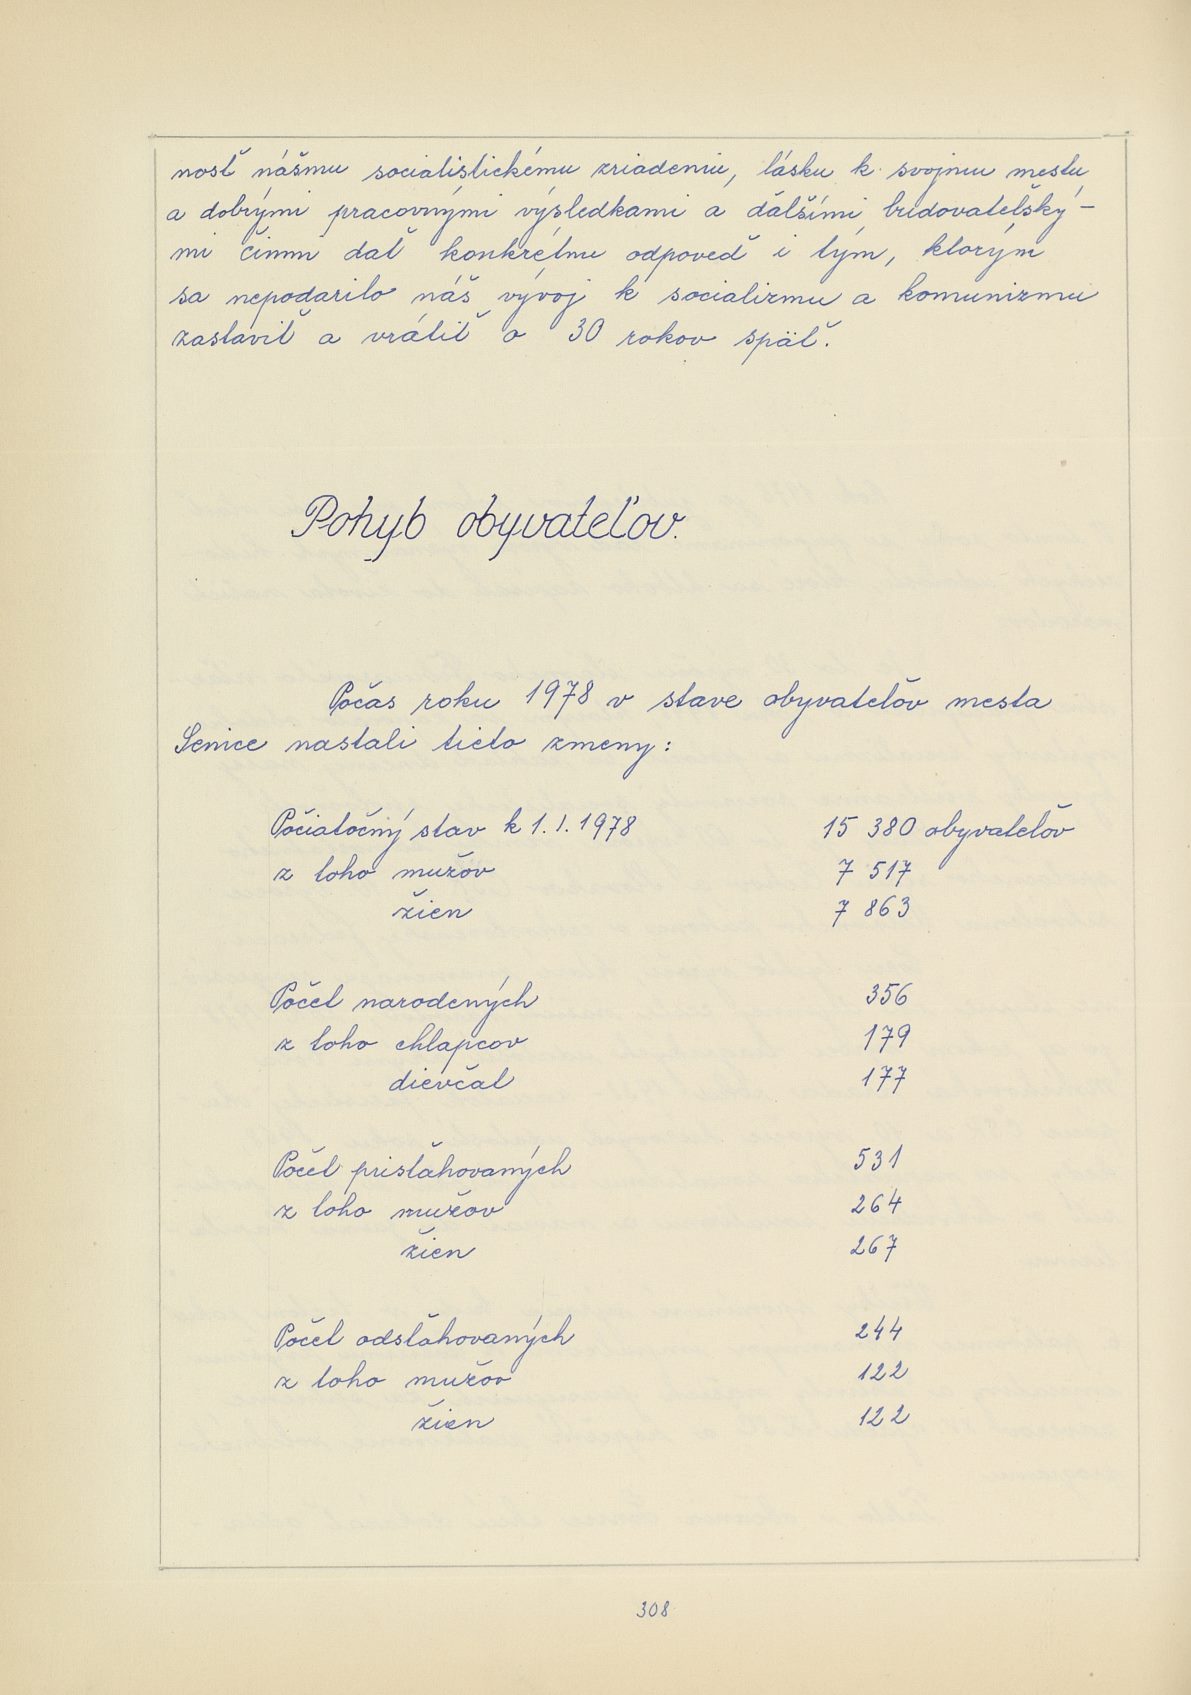 nosť nášmu socialistickému zriadeniu, lásku k svojmu mestu
a dobrými pracovnými výsledkami a ďalšími budovateľský-
mi činmi dať konkrétnu odpoveď i tým, ktorým
sa nepodarilo náš vývoj k socializmu a komunizmu
zastaviť a vrátiť o 30 rokov späť.
Pohyb obyvateľov.
Počas roku 1978 v stave obyvateľov mesta
Senice nastali tieto zmeny:
Počiatočný stav k 1. 1. 1978 15 380 obyvateľov
z toho mužov 7 517
žien 7 863
Počet narodených 356
z toho chlapcov 179
dievčat 177
Počet prisťahovaných 531
z toho mužov 264
žien 267
Počet odsťahovaných 244
z toho mužov 122
žien 122
308